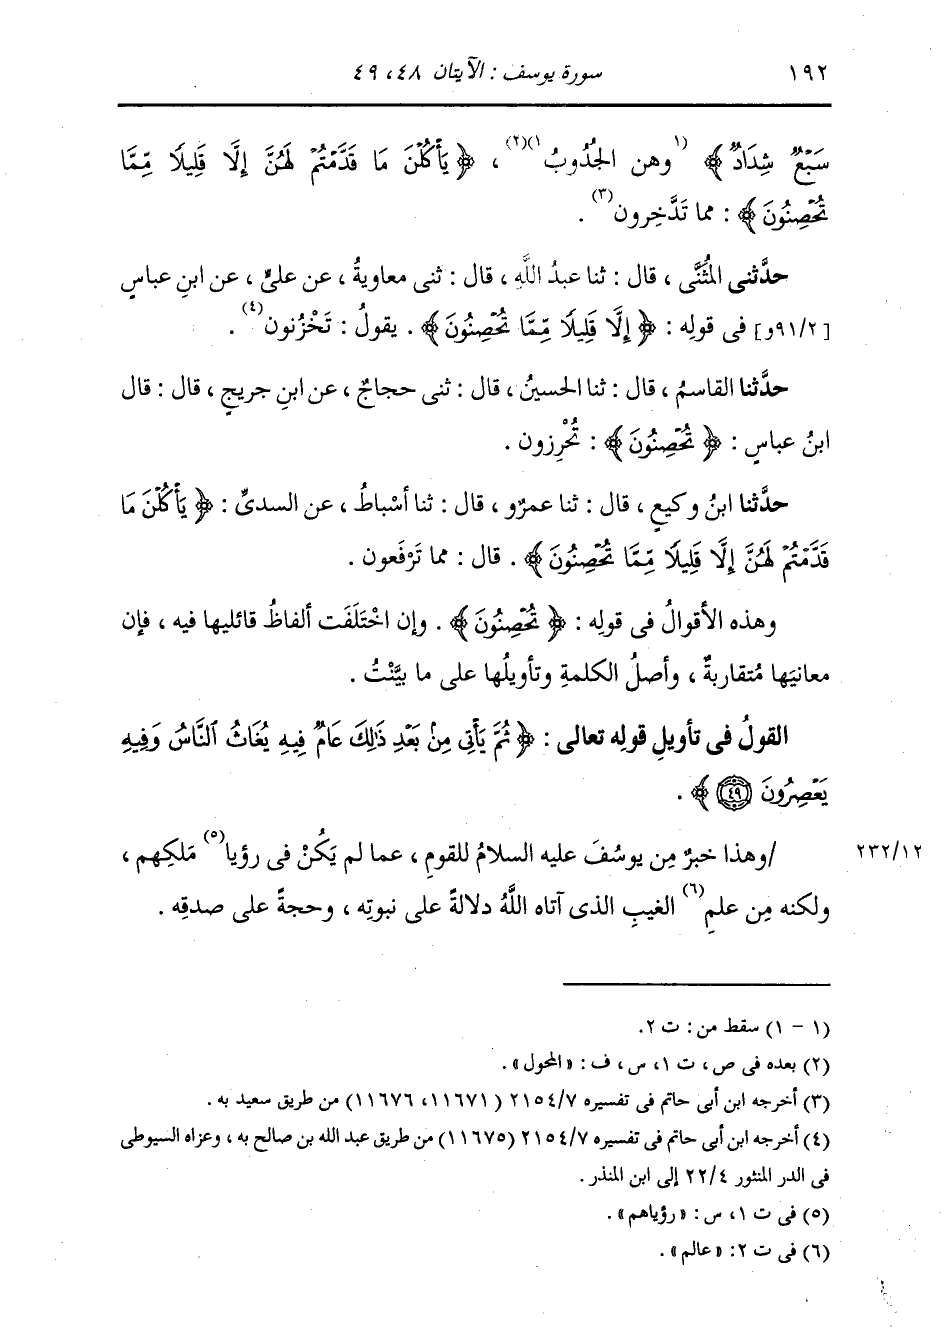 ١٩٢ سورة يوسف : الآيتان ٤٨، ٤٩
سَبْعٌ شِدَادٌ﴾ (١ وهن الجُدُوبُ ١)(٢) ، ﴿يَأْكُلْنَ مَا قَدَّمْتُمْ لَهُنَّ إِلَّا قَلِيلًا مِّمَّا
تُحْصِنُونَ﴾ : مما تَدَّخِرون(٣) .
حدَّثنى المُثَنَّى ، قال : ثنا عبدُ اللَّهِ ، قال : ثنى معاويةُ ، عن علىٍّ ، عن ابنِ عباسٍ
[٩١/٢و] فى قولِه : ﴿إِلَّا قَلِيلًا مِّمَّا تُحْصِنُونَ﴾ . يقولُ : تَخْزُنون(٤) .
حدَّثنا القاسمُ ، قال : ثنا الحسينُ ، قال : ثنى حجاجٌ ، عن ابنِ جريجٍ ، قال : قال
ابنُ عباسٍ : ﴿تُحْصِنُونَ﴾ : تُحْرِزون .
حدَّثنا ابنُ وكيعٍ ، قال : ثنا عمرٌو ، قال : ثنا أسْباطُ ، عن السدىِّ : ﴿يَأْكُلْنَ مَا
قَدَّمْتُمْ لَهُنَّ إِلَّا قَلِيلًا مِّمَّا تُحْصِنُونَ﴾ . قال : مما تَرْفَعون .
وهذه الأقوالُ فى قولِه : ﴿تُحْصِنُونَ﴾ . وإن اخْتَلَفَت ألفاظُ قائليها فيه ، فإن
معانيَها مُتقاربةٌ ، وأصلُ الكلمةِ وتأويلُها على ما بيَّنْتُ .
القولُ فى تأويلِ قولِه تعالى : ﴿ثُمَّ يَأْتِى مِنۢ بَعْدِ ذَٰلِكَ عَامٌ فِيهِ يُغَاثُ ٱلنَّاسُ وَفِيهِ
يَعْصِرُونَ ٤٩﴾ .
/وهذا خبرٌ مِن يوسُفَ عليه السلامُ للقومِ ، عما لم يَكُنْ فى رؤيا(٥) مَلكِهم ، ٢٣٢/١٢
ولكنه مِن علمِ(٦) الغيبِ الذى آتاه اللَّهُ دلالةً على نبوتِه ، وحجةً على صدقِه .
(١ - ١) سقط من : ت ٢.
(٢) بعده فى ص ، ت ١، س ، ف : « المحول » .
(٣) أخرجه ابن أبى حاتم فى تفسيره ٢١٥٤/٧ (١١٦٧١، ١١٦٧٦) من طريق سعيد به .
(٤) أخرجه ابن أبى حاتم فى تفسيره ٢١٥٤/٧ (١١٦٧٥) من طريق عبد الله بن صالح به ، وعزاه السيوطى
فى الدر المنثور ٢٢/٤ إلى ابن المنذر .
(٥) فى ت ١، س : « رؤياهم » .
(٦) فى ت ٢: « عالم » .